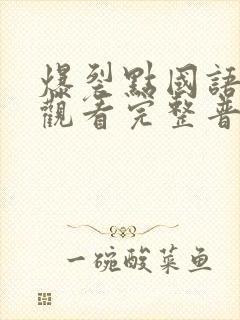 爆裂點國語
觀看完整普
一碗酸菜鱼